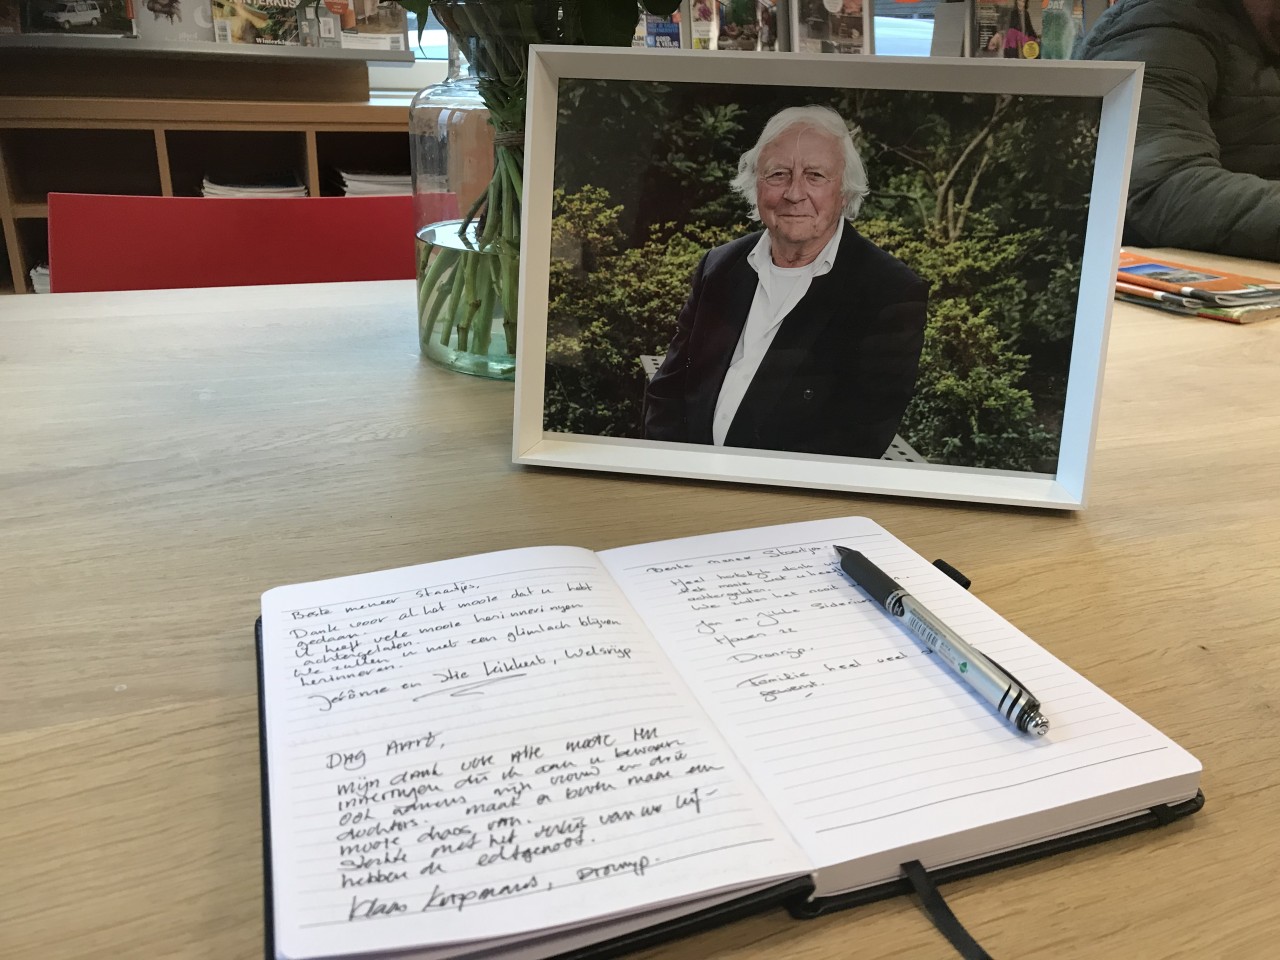 WINTERKUS
Beste meneer Staartjes,
Dank voor al het mooie dat u hebt
gedaan.
U heeft vele mooie herinneringen
achtergelaten.
We zullen u met een glimlach blijven
herinneren.
Jérôme en Kikkert, Welsryp
Dag Aart,
Mijn dank voor Alle mooie her
inneringen die ik aan u bewaren
ook namens mijn vrouw en drie
dochters. maak er boven maar een
mooie chaos van.
Sterkte met het verlies van uw lief-
hebben de echtgenoot.
Klaas Koopmans, Dronryp.
Beste meneer Staartjes.
Heel hartelijk dank
het mooie wat u heeft
achtergelaten.
We zullen het nooit
Jan en
22
Dronrijp.
Familie heel veel
gewenst.